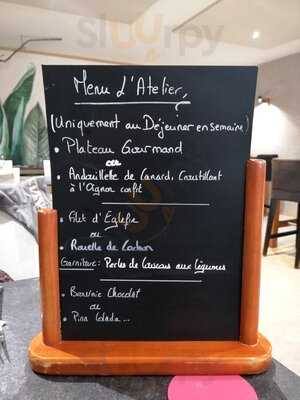 sluurpy
Menu d'Atelier,
(Uniquement au Déjeuner en semaine)
• Plateau Gourmand
ou
• Andouillette de Canard, Croustillant
à l'Oignon confit
• Filet d'Eglefin
ou
• Rouelle de Cochon
Garniture: Perles de Couscous aux légumes
• Brownie Chocolat
ou
• Pina Colada...